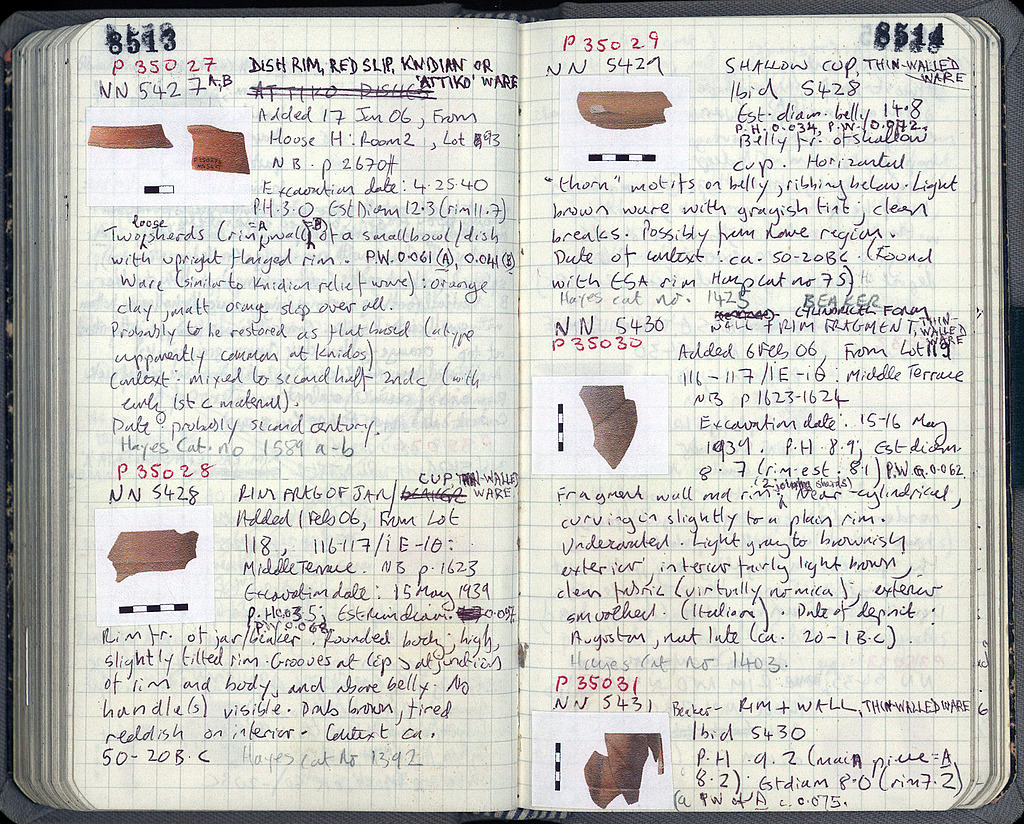 8513
P 35027
NN 5427 A,B
DISH RIM, RED SLIP, KNIDIAN OR
'ATTIKO' WARE
ATTIKO DISHES
Added 17 Jan 06, From
House H: Room 2, Lot 893
NB. p 2670ff
Excavation date: 4.25.40
P.H. 3.0 Est Diam 12.3 (rim 11.7)
Two loose sherds (rim = A, wall = B) of a small bowl/dish
with upright flanged rim. P.W. 0.061 (A), 0.041 (B)
Ware (similar to Knidian relief ware): orange
clay, matt orange slip over all.
Probably to be restored as flat based (a type
apparently common at Knidos)
Context: mixed to second half 2nd c (with
early 1st c material).
Date: probably second century.
Hayes Cat. no 1589 a-b
P 35028
NN 5428
CUP, THIN-WALLED
RIM FRAG OF JAR/BEAKER WARE
Added 1 Feb 06, From Lot
118, 116-117/iE-10:
Middle Terrace. NB p. 1623
Excavation date: 15 May 1939
P.H. 0.035; Est rim diam. 0.09
P.W. 0.068
Rim fr. of jar/beaker. Rounded body; high,
slightly tilted rim. Grooves at lip, at junction
of rim and body, and above belly. No
handle(s) visible. Drab brown, fired
reddish on interior. Context ca.
50-20 B.C Hayes cat no 1392
8514
P 35029
NN 5429
SHALLOW CUP, THIN-WALLED
WARE
Ibid 5428
Est. diam. belly 14.8
P.H. 0.034, P.W. 0.072.
Belly fr. of shallow
cup. Horizontal
"thorn" motifs on belly, ribbing below. Light
brown ware with grayish tint; clean
breaks. Possibly from Rome region.
Date of context: ca. 50-20 BC. (Found
with ESA rim Hayes cat no 75)
Hayes cat no. 1425
BEAKER
CYLINDRICAL FORM
NN 5430
WALL + RIM FRAGMENT, THIN-
WALLED
WARE
P 35030
Added 6 Feb 06, From Lot 119
116-117/iE-10: Middle Terrace
NB p 1623-1624
Excavation date: 15-16 May
1939. P.H. 8.9; Est diam.
8.7 (rim est. 8.1) P.W. 0.062
(2 joining sherds)
Fragment wall and rim; Near-cylindrical,
curving in slightly to a plain rim.
Undecorated. Light gray to brownish
exterior, interior fairly light brown,
clean fabric (virtually no mica), exterior
smoothed. (Italian). Date of deposit:
Augustan, not late (ca. 20-1 B.C).
Hayes Cat No 1403.
P 35031
NN 5431
Beaker- RIM + WALL, THIN-WALLED WARE
Ibid 5430
P.H. 9.2 (main piece = A
8.2); Est diam 8.0 (rim 7.2)
PW of A c. 0.075.